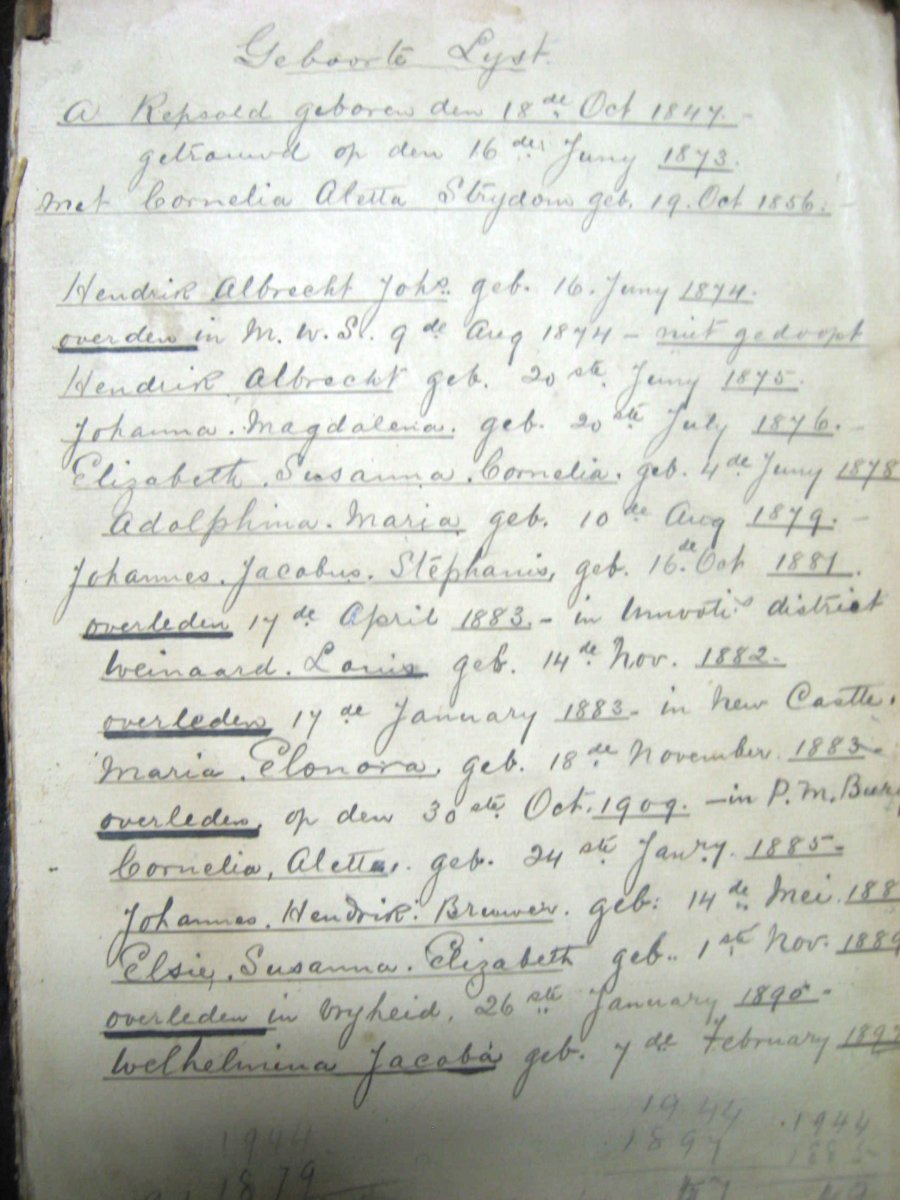 Geboorte Lyst.
A Repsold geboren den 18de Oct 1847.-
getrouwd op den 16de Juny 1873.
met Cornelia Aletta Strydom geb. 19. Oct 1856.-
Hendrik Albrecht Johs. geb. 16. Juny 1874.
overden in M. W. S. 9de Aug 1874 - niet gedoopt
Hendrik Albrecht geb. 20ste Juny 1875.
Johanna. Magdalena. geb. 20ste July 1876.-
Elizabeth. Susanna. Cornelia. geb. 4de Juny 1878
Adolphina. Maria geb. 10de Aug 1879.-
Johannes. Jacobus. Stephanis, geb. 16de Oct 1881.
overleden 17de April 1883.- in Umvoti district
Weinaard. Louis geb. 14de Nov. 1882.-
overleden 17de January 1883- in New Castle.
Maria. Elonora. geb. 18de November 1883-
overleden. op den 30ste Oct. 1909. - in P. M. Burg
Cornelia, Aletta. geb. 24ste Janry. 1885-
Johannes. Hendrik. Brewer. geb: 14de Mei 188
Elsie. Susanna. Elizabeth geb.. 1ste Nov. 1889
overleden in Vryheid. 26ste January 1895-
Welhelmina Jacoba geb. 7de February 1897
1944 1944 1944
1879 1897 1885
57